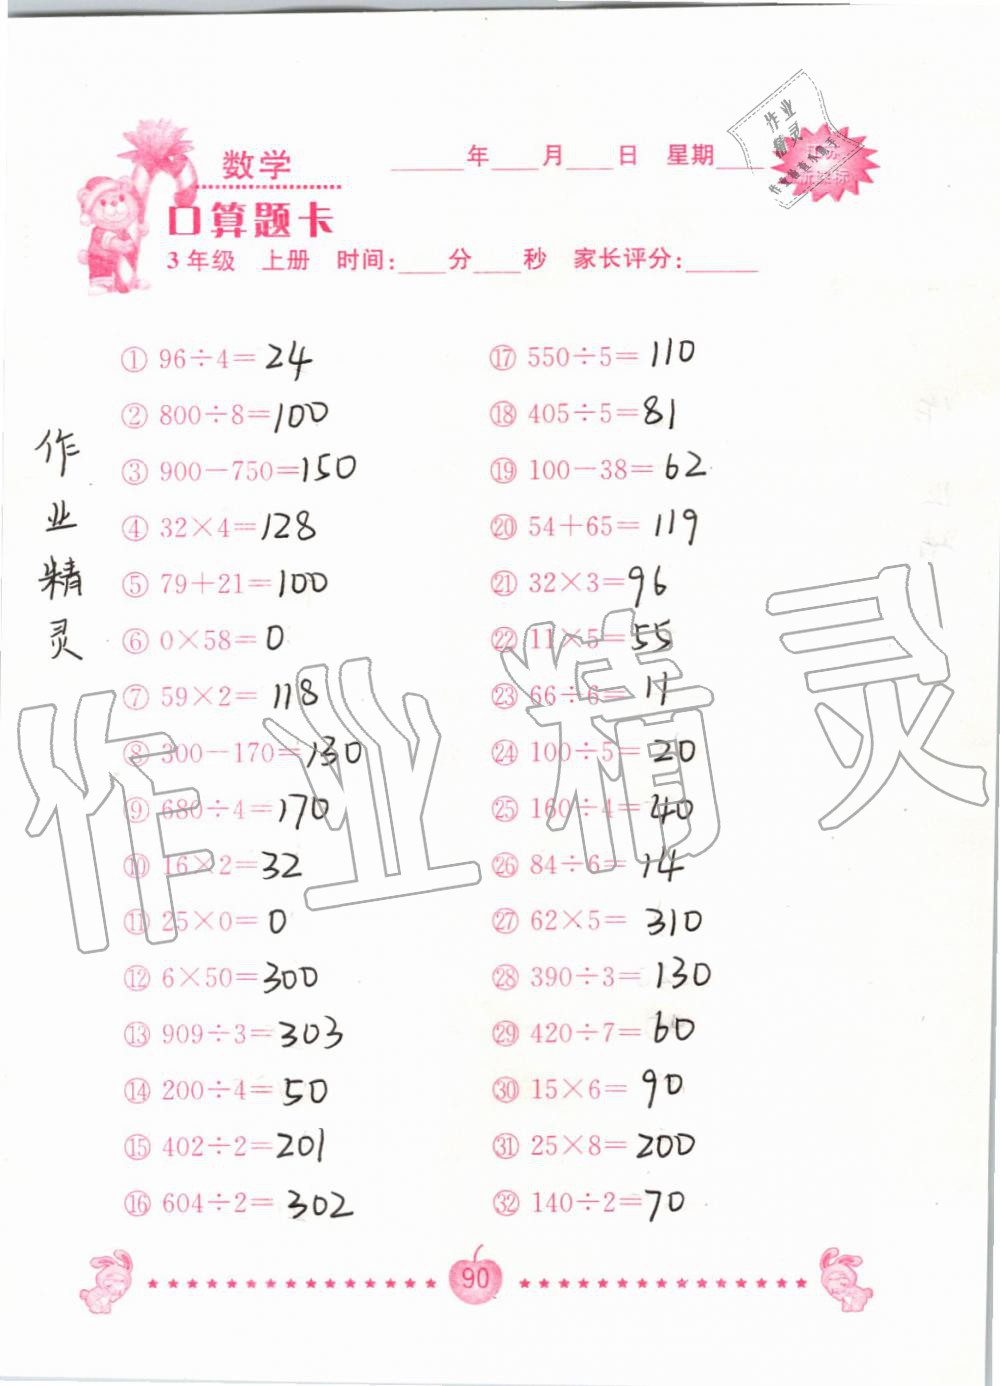 数学
____年____月____日 星期____
口算题卡
3年级 上册 时间:____分____秒 家长评分:____
① 96÷4=24
② 800÷8=100
③ 900-750=150
④ 32×4=128
⑤ 79+21=100
⑥ 0×58=0
⑦ 59×2=118
⑧ 300-170=130
⑨ 680÷4=170
⑩ 16×2=32
⑪ 25×0=0
⑫ 6×50=300
⑬ 909÷3=303
⑭ 200÷4=50
⑮ 402÷2=201
⑯ 604÷2=302
⑰ 550÷5=110
⑱ 405÷5=81
⑲ 100-38=62
⑳ 54+65=119
㉑ 32×3=96
㉒ 11×5=55
㉓ 66÷6=11
㉔ 100÷5=20
㉕ 160÷4=40
㉖ 84÷6=14
㉗ 62×5=310
㉘ 390÷3=130
㉙ 420÷7=60
㉚ 15×6=90
㉛ 25×8=200
㉜ 140÷2=70
作业精灵
作业精灵
作业
精灵
90